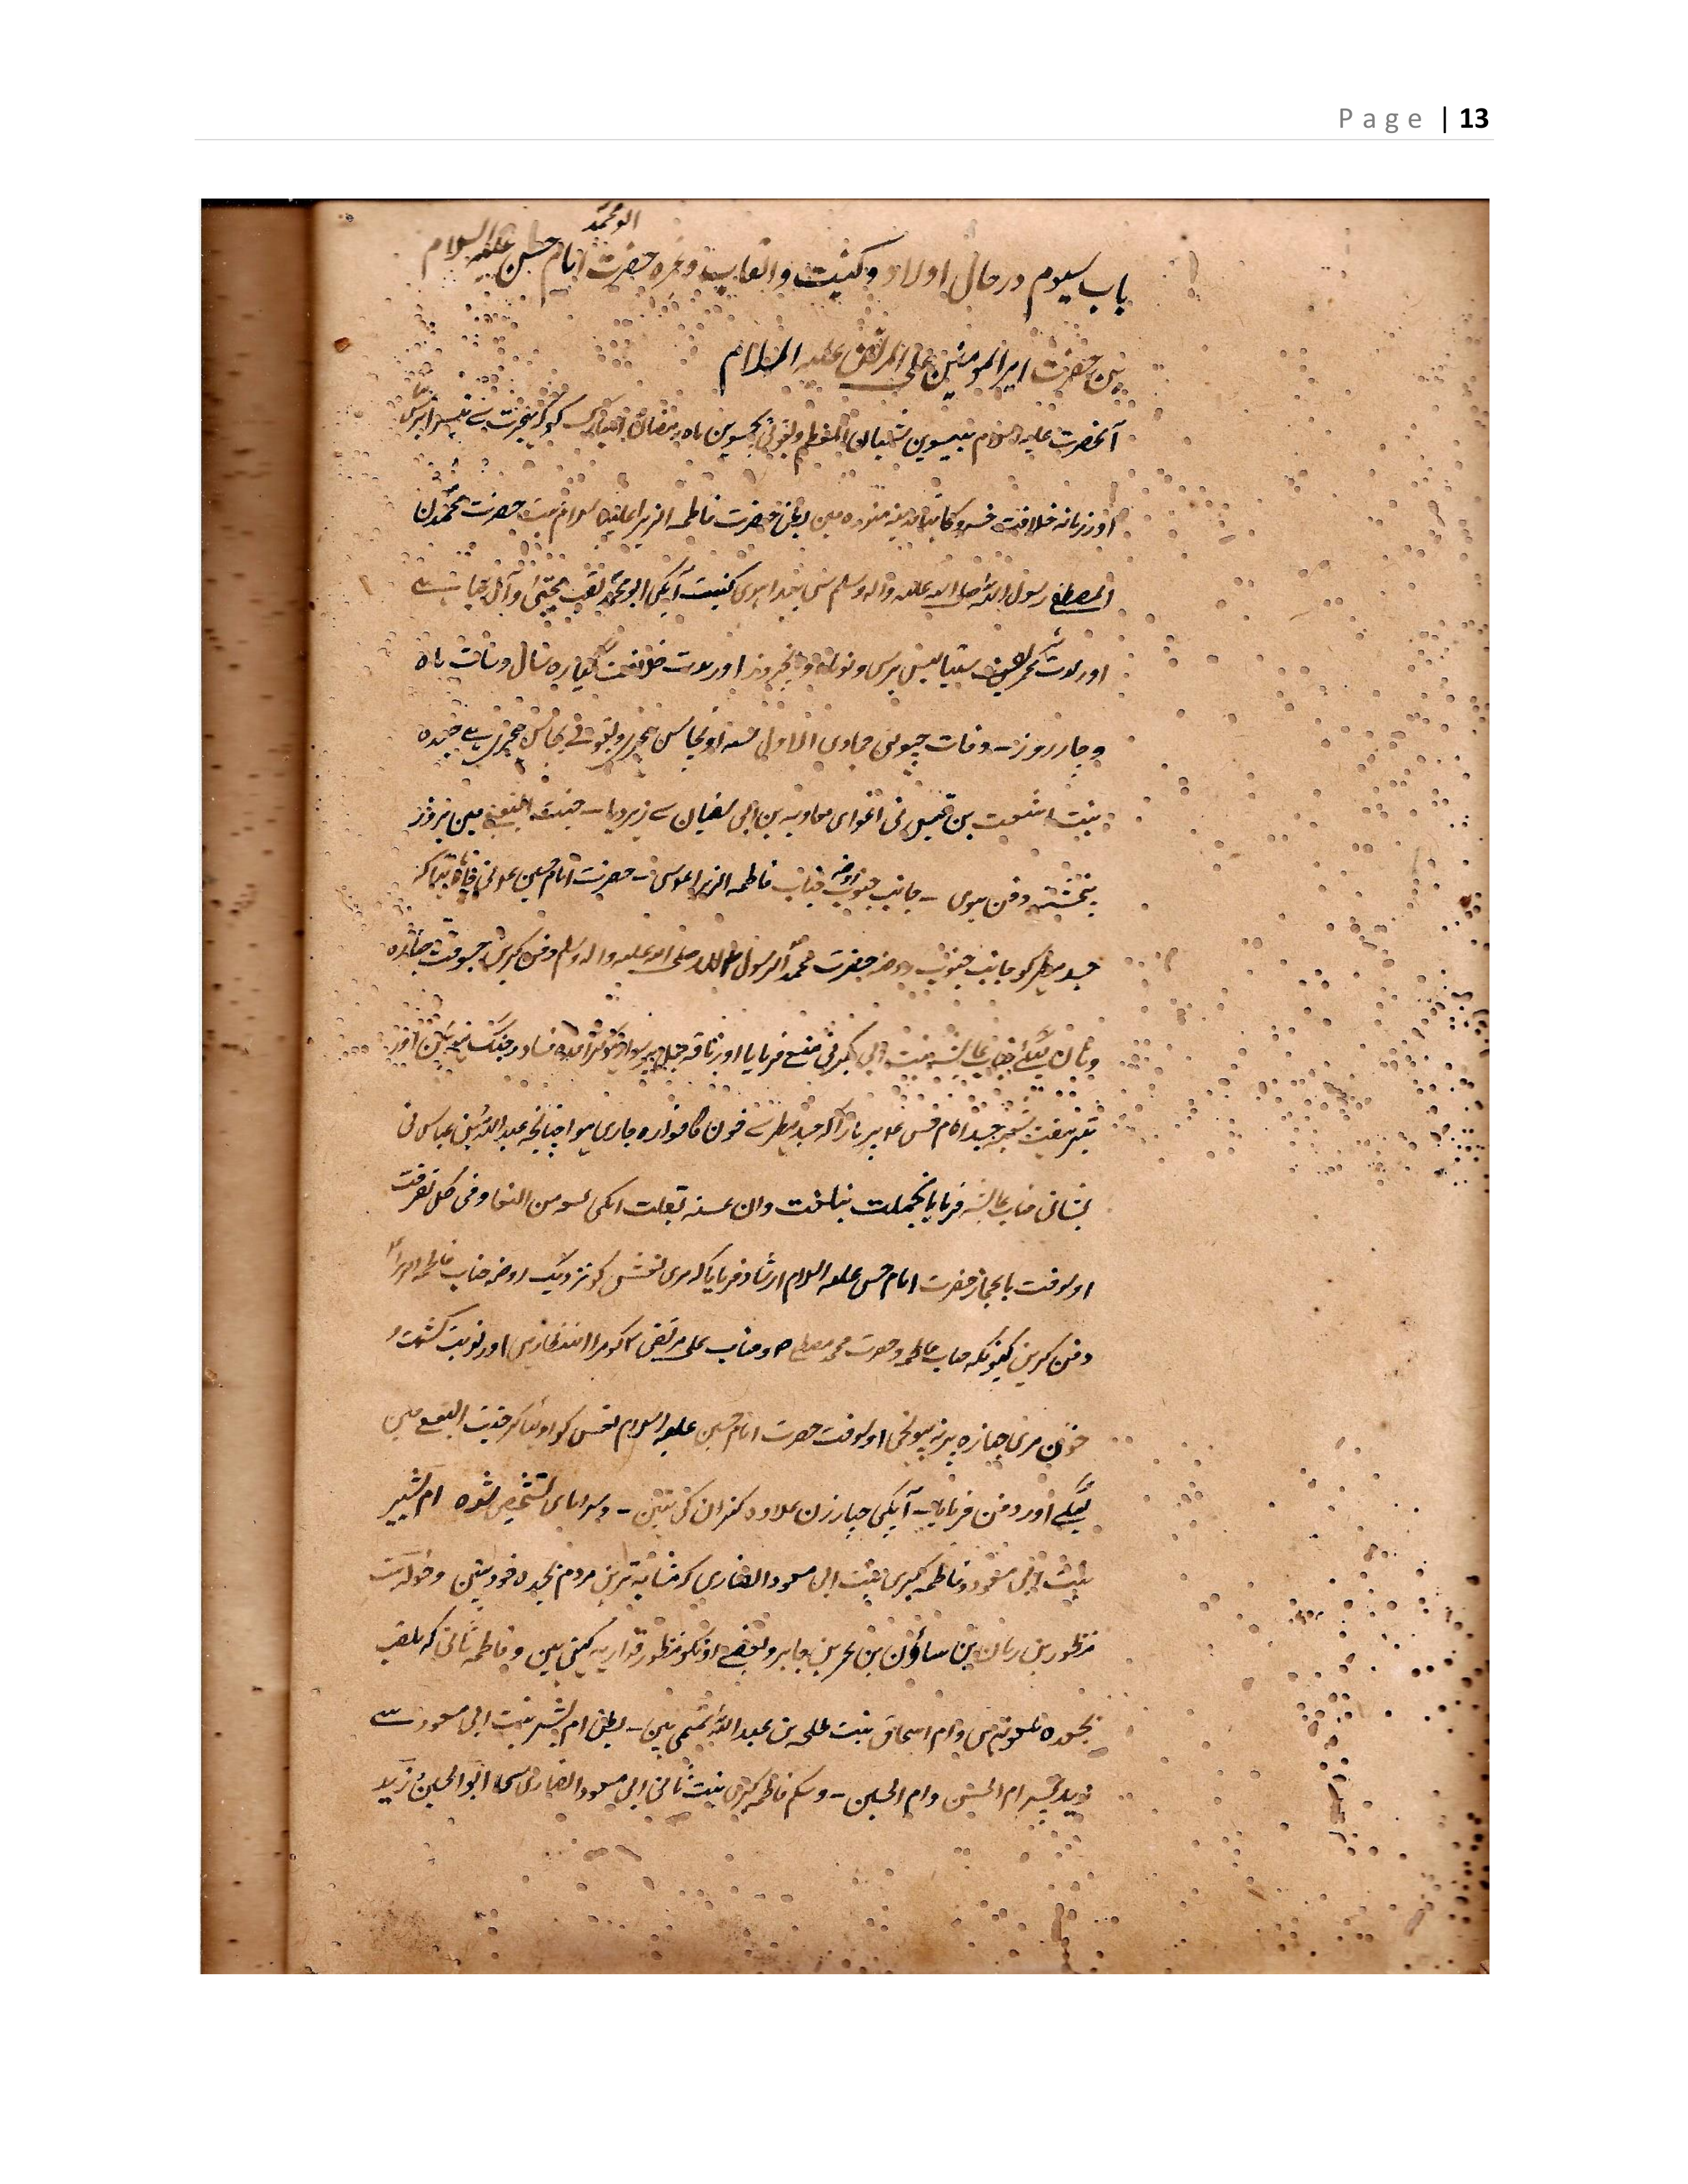 Page | 13
ابو محمد
باب سیوم در حال اولاد و کنیت و القاب وغیره حضرت امام حسن علیه السلام
بن حضرت امیر المومنین علی المرتضی علیه السلام
آنحضرت علیه السلام شعبان المعظم و بقولی پچیسوین ماه رمضان المبارک کو هجرت سے تیسرا برس
اور زمانه خلافت مدینه منوره مین بطن حضرت فاطمه الزهرا علیها السلام بنت حضرت محمد
المصطفے رسول الله صلی الله علیه واله وسلم سی پیدا ہوی کنیت آپکی ابو محمد لقب مجتبی و آل عبا ہے
اور مدت عمر شریف سینتالیس برس و نوماه و پنجروز اور مدت خلافت سال و سات ماه
و چار روز۔ وفات جمادی الاول سنه اونچاس هجری و بقولے پچاس هجری ہے جعده
بنت اشعث بن قیس نی اغوای معاویه بن ابی سفیان سے زہر دیا۔ جنت البقیع مین بروز
پنجشنبه دفن ہوی ۔ جانب جنوب روضه جناب فاطمه الزهرا ۔ حضرت امام حسین نی چاہا تہا که
جسد مطهر کو جانب جنوب روضه حضرت محمد الرسول الله صلی الله علیه واله وسلم دفن کرین جسوقت جنازه
وہان لیگئے جناب عائشه بنت ابی بکر نی منع فرمایا اور ناقه پر سوار ہوکر آماده فساد و جنگ ہوئین اور
تیر جسد امام حسن پر مارا که جسد مطهر سے خون کا فواره جاری ہوا چنانچه عبدالله بن عباس نی
جناب عائشه فرمایا تجملت تبغلت وان عشت تفیلت لکی تسع من الثمن وفی کل تصرفت
اوسوقت باعجاز حضرت امام حسن علیه السلام ارشاد فرمایا که مری نعش کو نزدیک روضه جناب فاطمه الزهرا
دفن کرین کیونکه جناب فاطمه و حضرت محمد مصطفے و جناب علی مرتضی کو مرا انتظار ہی اور نوبت کشت و
خون مری جنازه پر نه پہونچی اوسوقت حضرت امام حسین علیه السلام نعش کو اوٹہا کر جنت البقیع مین
لیگئے اور دفن فرمایا۔ آپکی چار زن علاوه کنیزان کی تہین۔ ام البشیر
بنت ابی مسعود و فاطمه کبری بنت ابی مسعود انصاری که مردم جعده خود تہین و خوله بنت
منظور بن ریان بن بن جابر و بعضے اونکو منظور فزاریه کہتی ہین و فاطمه ثانی که بلقب
بجعده ملعونه ہی و ام اسحاق بنت طلحه بن عبدالله تمیمی ہین۔ بطن ام البشیر بنت ابی مسعود سے
ام الحسن و ام الحسین۔ و شکم فاطمه کبری بنت ثانی ابی مسعود انصاری سی ابو الحسین زید